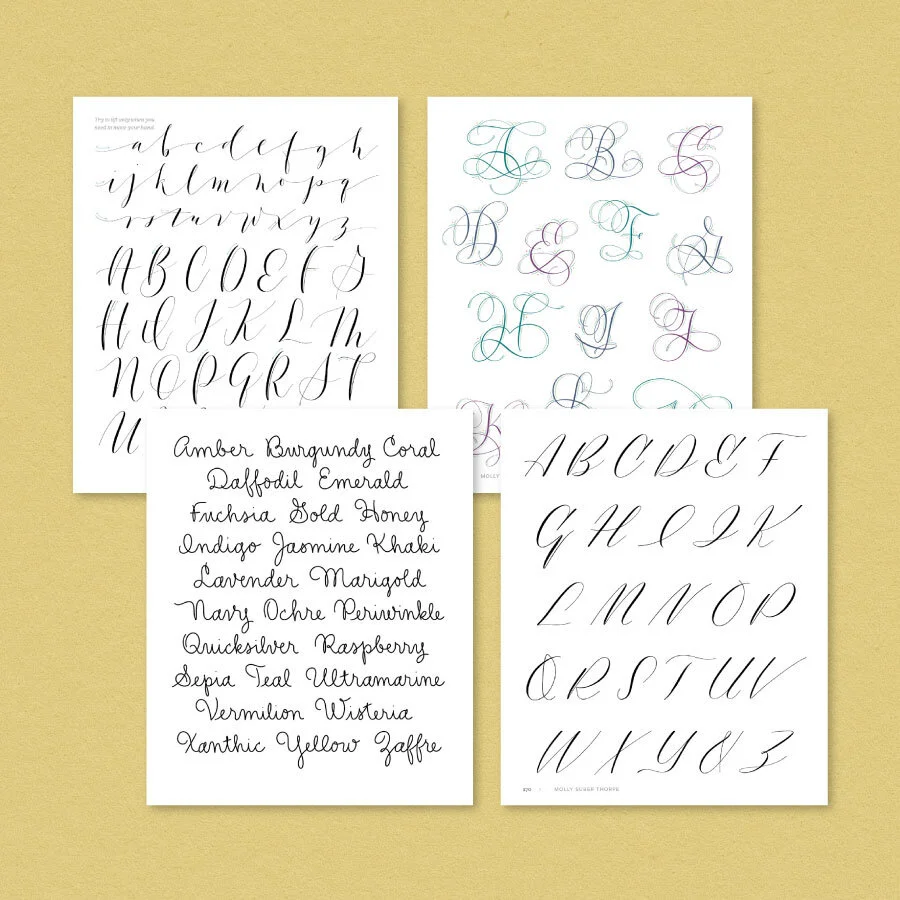 Try to lift only when you
need to move your hand.
a b c d e f g h
i j k l m n o p q
r s t u v w x y z
A B C D E F G
H I J K L M
N O P Q R S T
U
A B C
D E F G
H I J
K L
MOLLY
Amber Burgundy Coral
Daffodil Emerald
Fuchsia Gold Honey
Indigo Jasmine Khaki
Lavender Marigold
Navy Ochre Periwinkle
Quicksilver Raspberry
Sepia Teal Ultramarine
Vermilion Wisteria
Xanthic Yellow Zaffre
A B C D E F
G H I J K
L M N O P
Q R S T U V
W X Y & Z
270 | MOLLY SUBER THORPE